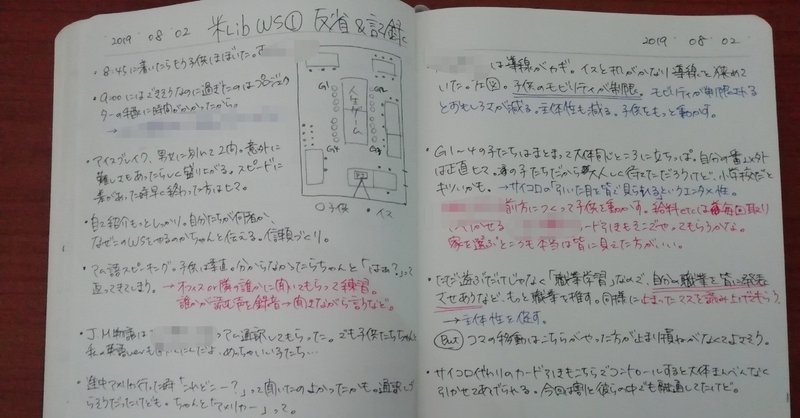 2019 08 02
米Lib WS① 反省&記録
・8:45に着いたらもう子供はほぼいた。
・9:00にはできそうなのに過ぎたのはプロジェク
ターの準備に時間がかかったから。
→
・アイスブレイク、男女に別れて2周。意外に
難しくもあったらしく盛り上がる。スピードに
差があった時早く終わった方はヒマ。
・自己紹介もっとしっかり。自分たちが何者か、
なぜこのWSをやるのかちゃんと伝える。信頼づくり。
・アム語スピーキング。子供は素直。分からなかったらちゃんと「はぁ?」って
返ってきてしまう。→
誰かが読む声を録音→聞きながら言うなど。
・JM物語は
アム通訳してもらった。でも子供たちちゃんと
めちゃいい子たち…
・途中でアメリカ行った時「これどこー?」って聞いたのよかったかも。通訳し
ちゃんと「アメリカー」って。
人生ゲーム
G1
G4
○子供 ・イス
2019 08 02
は導線がカギ。イスと机がかなり導線を狭め
ていた。 子供のモビリティが制限。モビリティが制限される
とおもしろさが減る。主体性も減る。子供をもっと動かす。
・G1〜4の子たちはまとまって大体同じところに立ちっぱ。自分の番以外
は正直ヒマ。 の子たちだから大人しく待ってただろうけど、小学校だと
キツいかも。→サイコロの「引いた目を皆で見られる」というエンタメ性。
前方につくって子供を動かす。給料etcは毎回取り
にいかせる ード引きもそこでやってもらうかな。
家を選ぶところも本当は皆に見えた方がいい。
・ただ遊ぶだけじゃなく「職業学習」なので、自分の職業を皆に発表
させあうなど、もっと職業を推す。同様に止まったマスを読み上げてもらう
→主体性を促す。
But コマの移動はこちらがやった方が止まり損ねがなくてよさそう。
・サイコロ代わりのカード引きもこちらでコントロールすると大体まんべんなく
引かせてあげられる。今回は割と彼らの中でも融通してたけど。